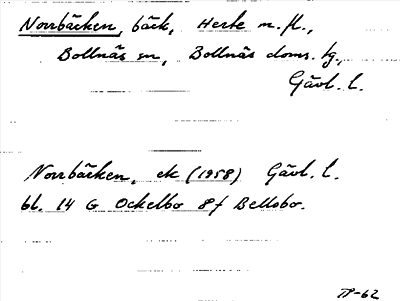 Norrbäcken, bäck, Herte m.fl.,
Bollnäs sn, Bollnäs doms. tg.,
Gävl. l.
Norrbäcken, ek (1958) Gävl. l.
bl. 14 G Ockelbo 8f Bellobo.
-62